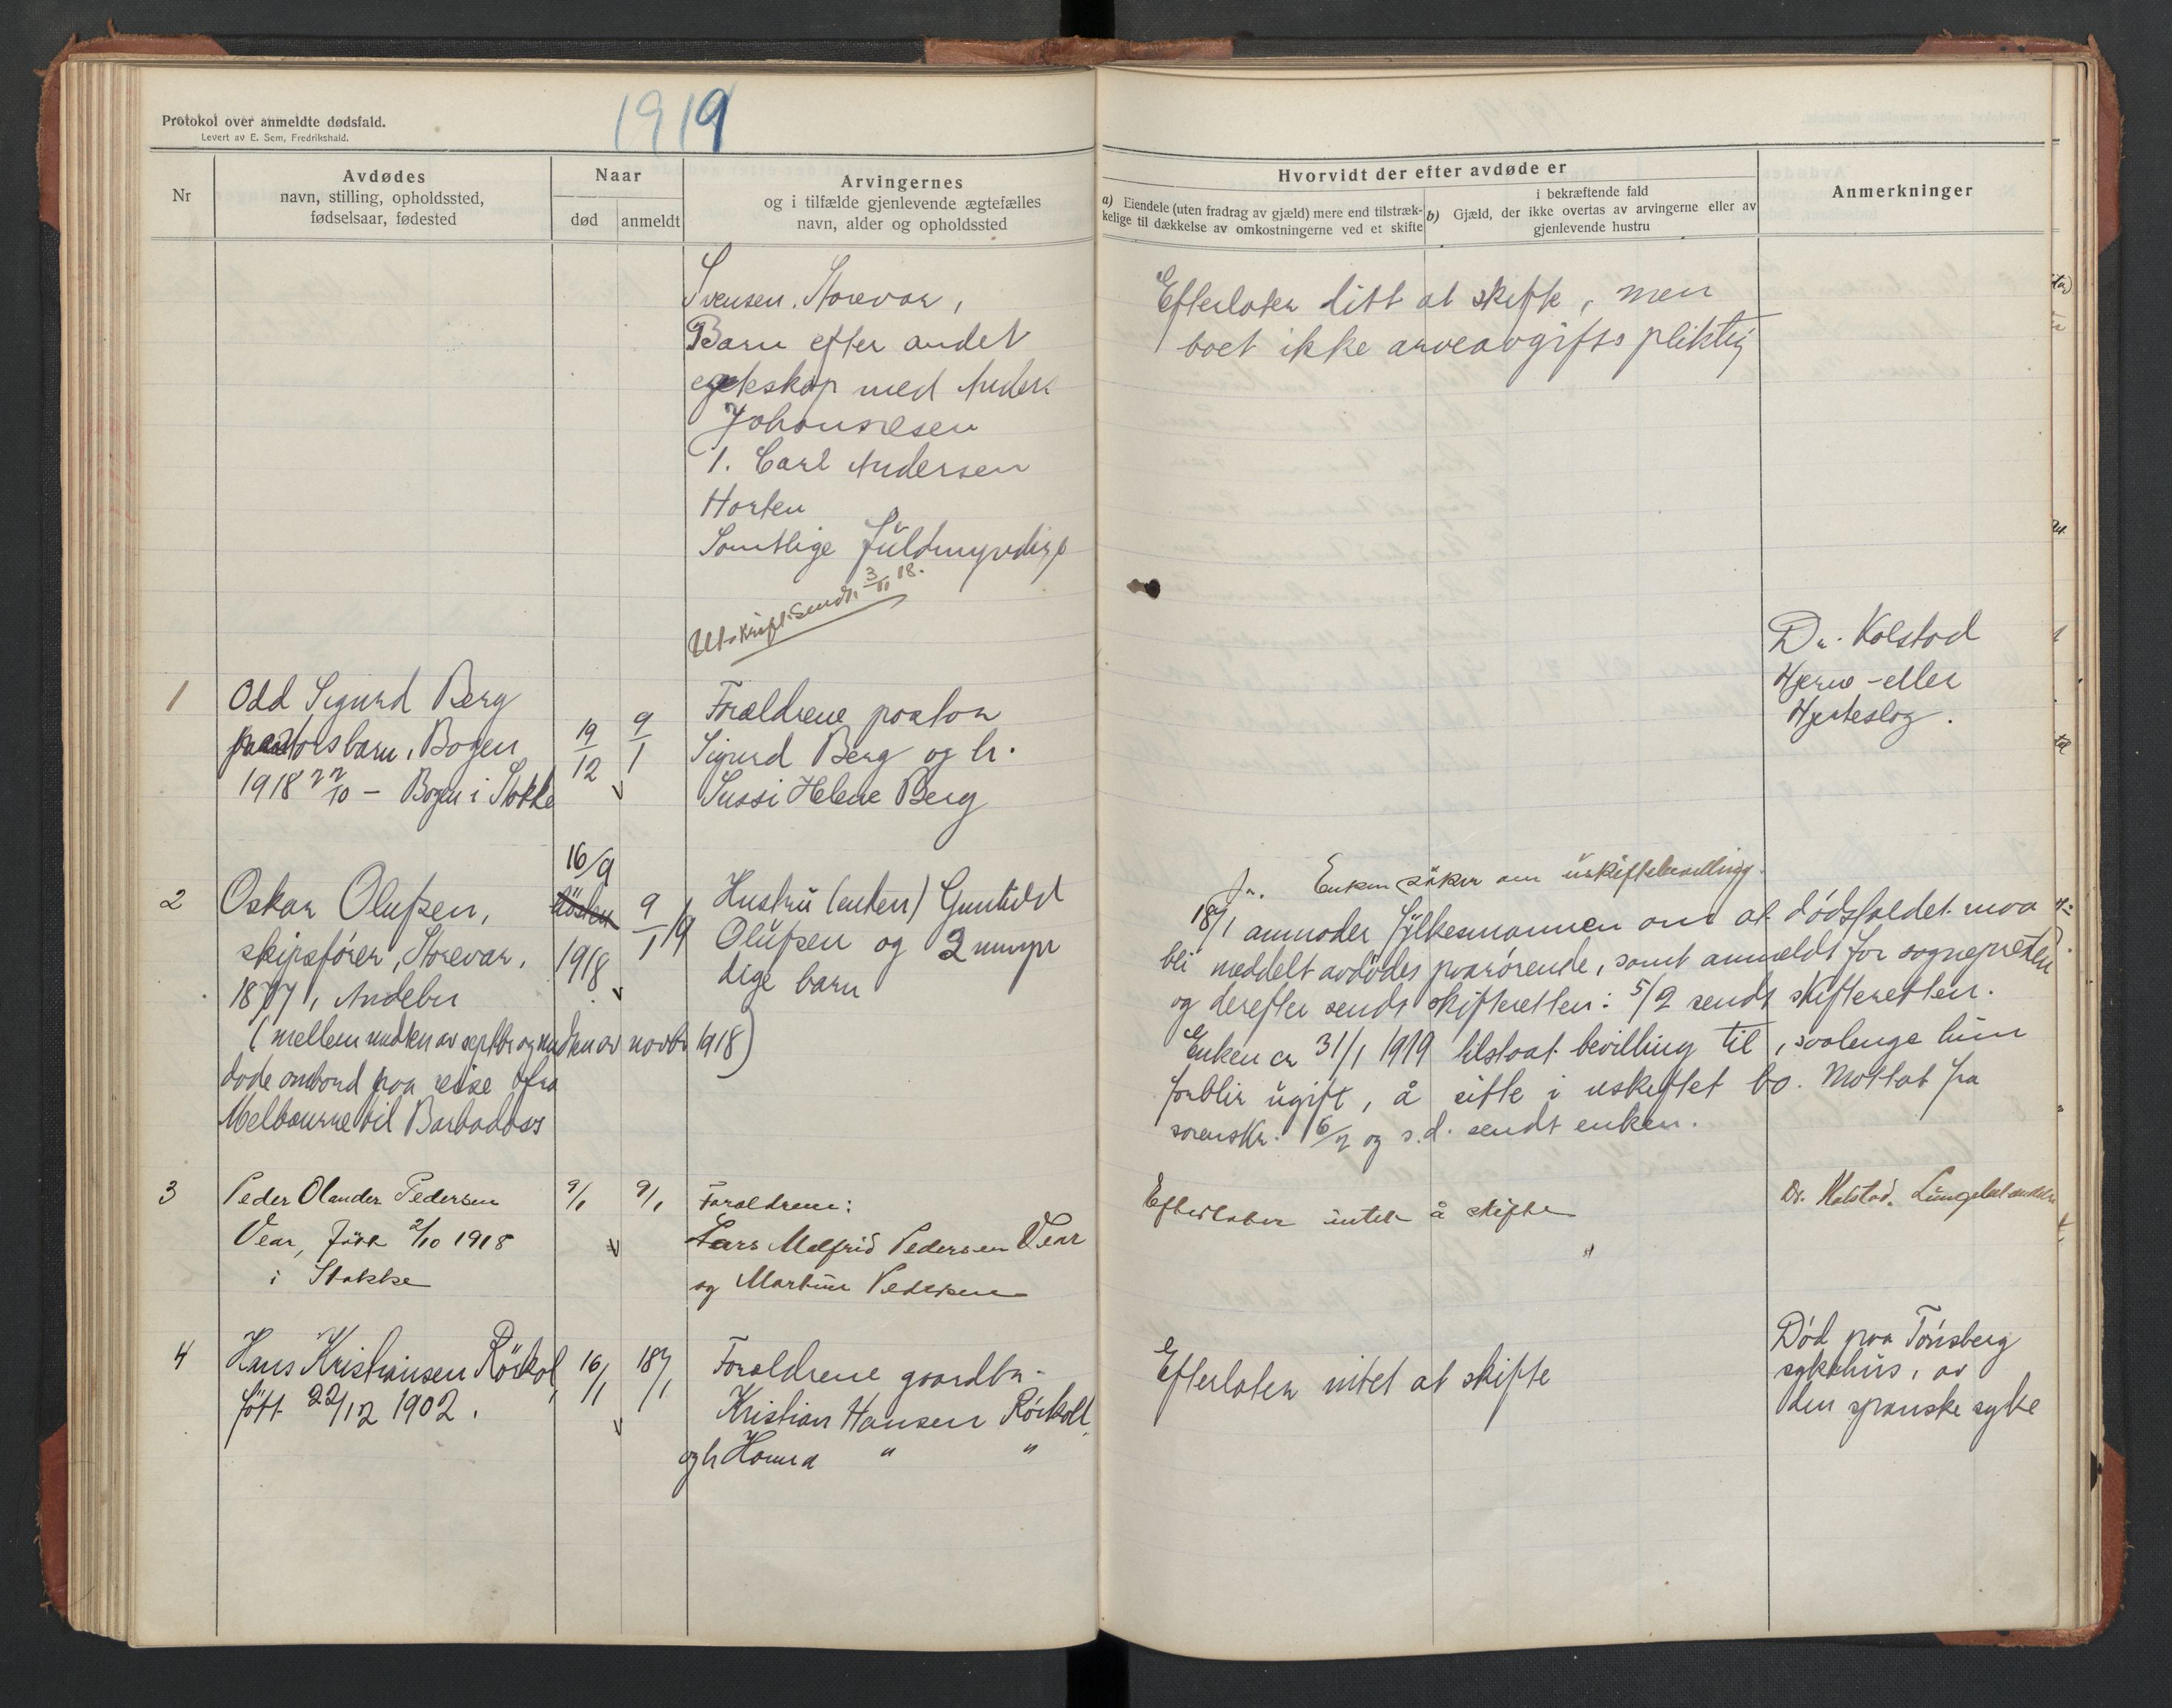 1919
Protokol over anmeldte dødsfald.
Levert av E. Sem, Fredrikshald.
Nr
Avdødes
navn, stilling, opholdssted,
fødselsaar, fødested
Naar
død
anmeldt
Arvingernes
og i tilfælde gjenlevende ægtefælles
navn, alder og opholdssted
Hvorvidt der efter avdøde er
a) Eiendele (uten fradrag av gjæld) mere end tilstræk-
kelige til dækkelse av omkostningerne ved et skifte
i bekræftende fald
b) Gjæld, der ikke overtas av arvingerne eller av
gjenlevende hustru
Anmerkninger
Svensen, Storevar,
Barn efter andet
egteskap med Anders
Johannesen
1. Carl Andersen
Horten
Samtlige fuldmyndige
Utskrift sendt 3/11 18.
Efterlater litt at skifte, men
boet ikke arveavgiftspliktig
1
Odd Sigurd Berg
pastorsbarn, Bogen
1918 22/10 - Bogen i Stokke
19/12
9/1
Forældrene pastor
Sigurd Berg og h.
Sussi Helene Berg
Dr. Kolstad
Hjerne- eller
Hjerteslag.
2
Oskar Olufsen,
skipsfører, Storevar,
1877, Andebu
(mellem midten av septbr og midten av novbr 1918)
døde ombord paa reise fra
Melbourne til Barbados
16/9
høsten
1918
9/1 19
Hustru (enken) Gunhild
Olufsen og 2 umyn
dige barn
Ja. Enken søker om uskiftebevilling.
18/1 anmoder fylkesmannen om at dødsfaldet maa
bli meddelt avdødes paarørende, samt anmeldt for sognepresten
og derefter sendt skifteretten: 5/2 sendt skifteretten.
Enken er 31/1 1919 tilstaat bevilling til, saalenge hun
forblir ugift, å sitte i uskiftet bo. Mottat fra
sorenskr. 6/2 og s.d. sendt enken.
3
Peder Olander Pedersen
Vear, født 2/10 1918
i Stokke
9/1
9/1
Forældrene:
Lars Malfrid Pedersen Vear
og Martine Pedersen
Efterlater intet å skifte
Dr. Kolstad.
4
Hans Kristiansen Röskol,
født 22/12 1902.
16/1
18/1
Forældrene gaardbr.
Kristian Hansen Röskoll,
og h Hanna " "
Efterlater intet at skifte
Død paa Tønsberg
sykehus, av
den spanske syke